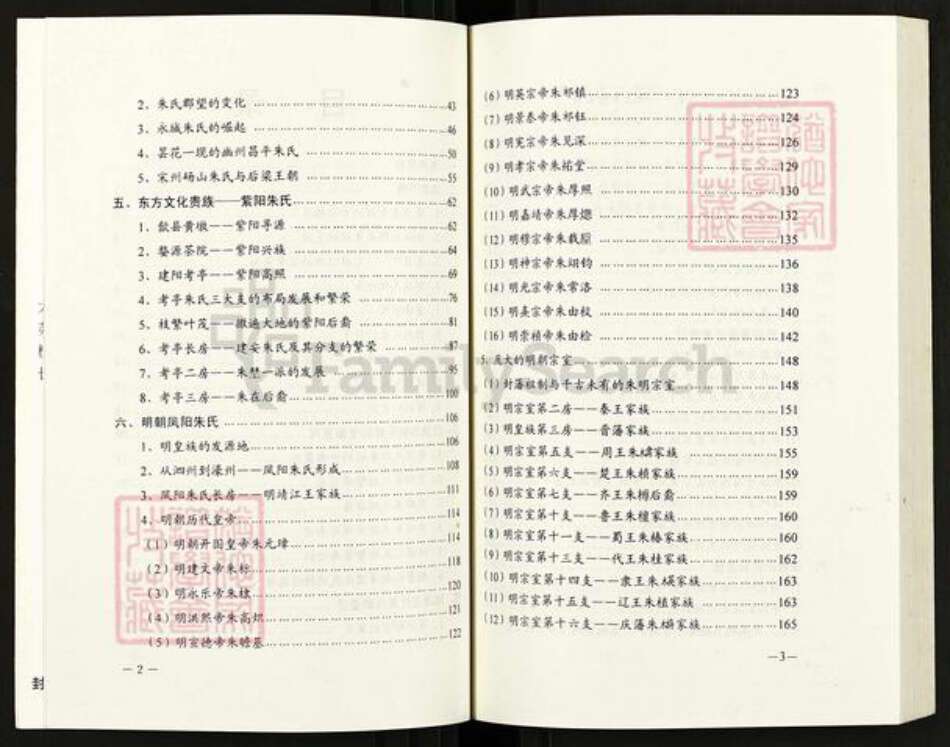 2、朱氏郡望的变化 ……43
3、永城朱氏的崛起 ……46
4、昙花一现的幽州昌平朱氏 ……50
5、宋州砀山朱氏与后梁王朝 ……55
五、东方文化贵族——紫阳朱氏……62
1、歙县黄墩——紫阳寻源 ……62
2、婺源茶院——紫阳兴族 ……64
3、建阳考亭——紫阳高照 ……69
4、考亭朱氏三大支的布局发展和繁荣 ……76
5、枝繁叶茂——撒遍大地的紫阳后裔 ……81
6、考亭长房——建安朱氏及其分支的繁荣 ……87
7、考亭二房——朱埜一派的发展 ……95
8、考亭三房——朱在后裔……100
六、明朝凤阳朱氏 ……106
1、明皇族的发源地……106
2、从泗州到濠州——凤阳朱氏形成……108
3、凤阳朱氏长房——明靖江王家族……111
4、明朝历代皇帝……114
(1)明朝开国皇帝朱元璋……114
(2)明建文帝朱标……118
(3)明永乐帝朱棣……120
(4)明洪熙帝朱高炽……121
(5)明宣德帝朱瞻基……122
—2—
(6)明英宗帝朱祁镇……123
(7)明景泰帝朱祁钰……124
(8)明宪宗帝朱见深……126
(9)明孝宗帝朱祐堂……129
(10)明武宗帝朱厚照 ……130
(11)明嘉靖帝朱厚熜 ……132
(12)明穆宗帝朱载垕 ……135
(13)明神宗帝朱翊钧 ……136
(14)明光宗帝朱常洛 ……138
(15)明熹宗帝朱由校 ……140
(16)明崇祯帝朱由检 ……142
5、庞大的明朝宗室……148
(1)封藩祖制与千古未有的朱明宗室……148
(2)明宗室第二房——秦王家族……151
(3)明皇族第三房——晋藩家族……153
(4)明宗室第五支——周王朱橚家族 ……155
(5)明宗室第六支——楚王朱桢家族……159
(6)明宗室第七支——齐王朱榑后裔……159
(7)明宗室第十支——鲁王朱檀家族……160
(8)明宗室第十一支——蜀王朱椿家族……160
(9)明宗室第十三支——代王朱桂家族……162
(10)明宗室第十四支——肃王朱楧家族……163
(11)明宗室第十五支——辽王朱植家族 ……163
(12)明宗室第十六支——庆藩朱㮵家族……165
—3—
封
FamilySearch